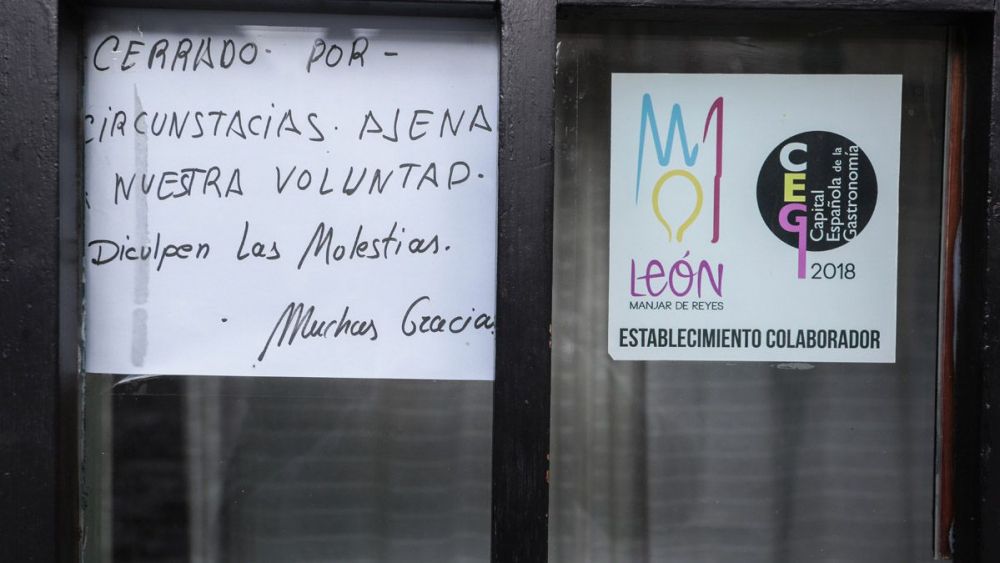 CERRADO POR -
CIRCUNSTACIAS. AJENA
NUESTRA VOLUNTAD.
Diculpen Las Molestias.
Muchas Gracias
LEÓN
MANJAR DE REYES
CEG
Capital
Española de la
Gastronomía
2018
ESTABLECIMIENTO COLABORADOR